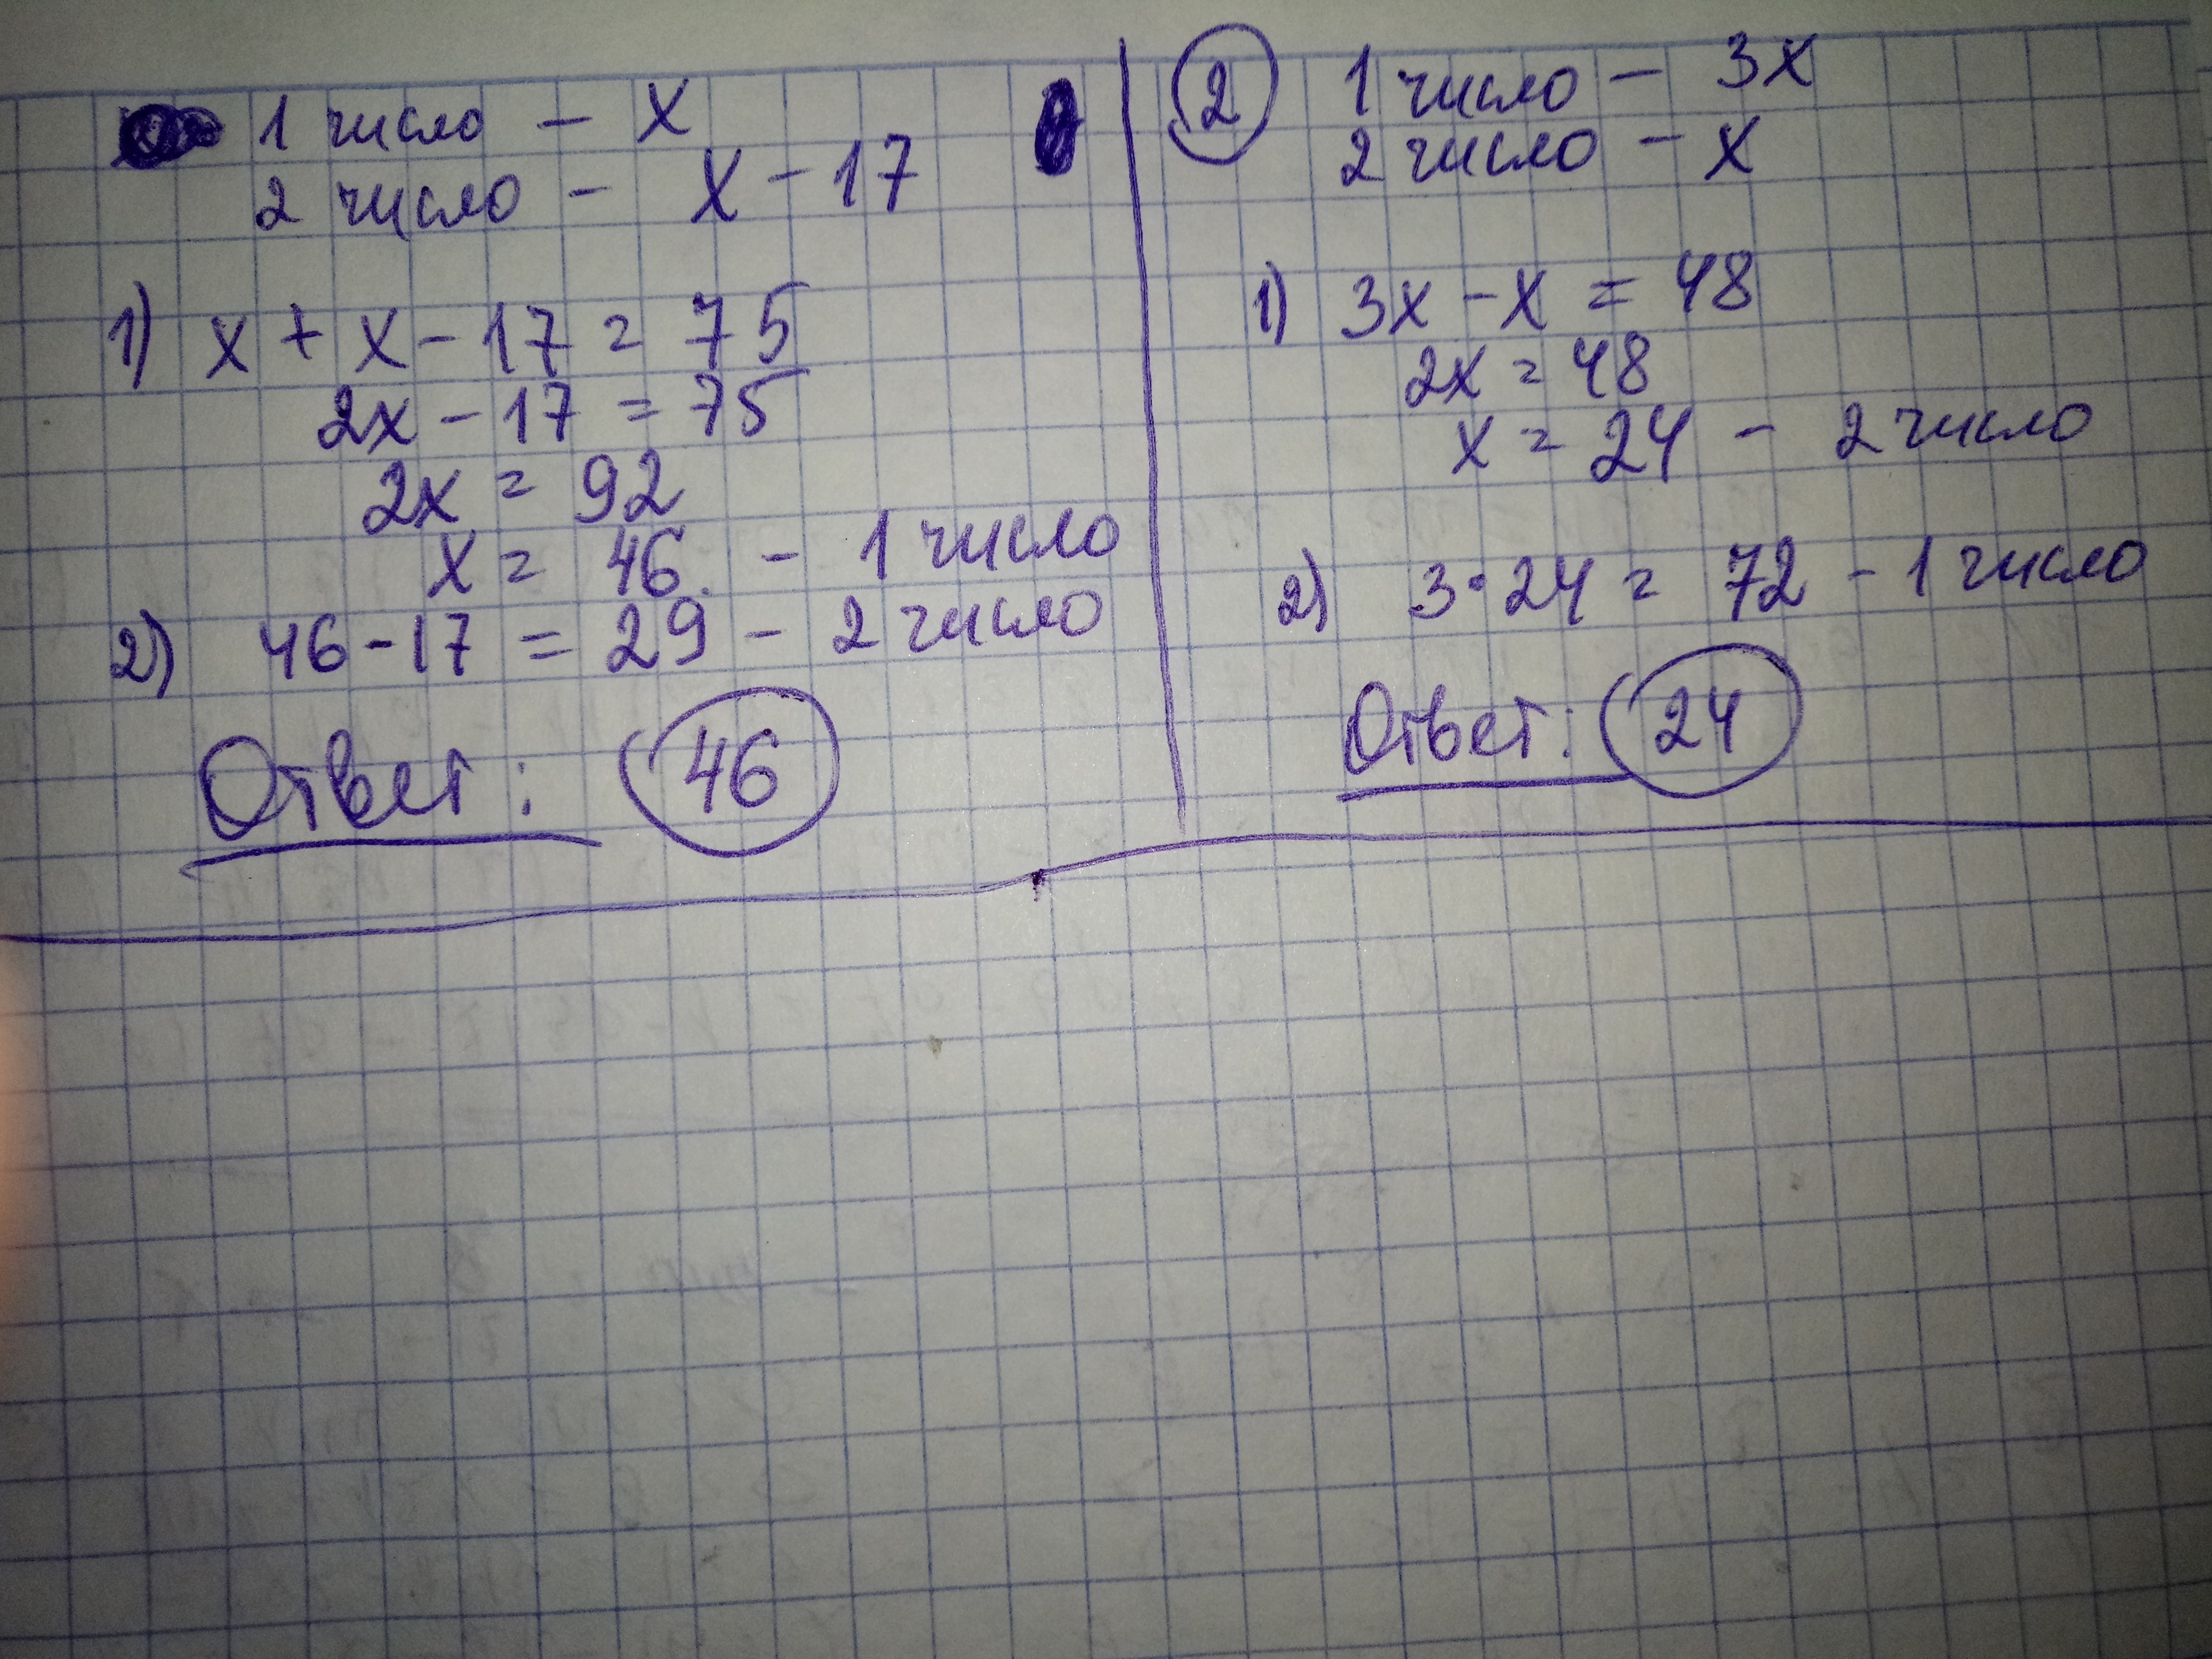 1 число - x
2 число - x - 17
1) x + x - 17 = 75
2x - 17 = 75
2x = 92
x = 46 - 1 число
2) 46 - 17 = 29 - 2 число
Ответ: 46
2 1 число - 3x
2 число - x
1) 3x - x = 48
2x = 48
x = 24 - 2 число
2) 3·24 = 72 - 1 число
Ответ: 24